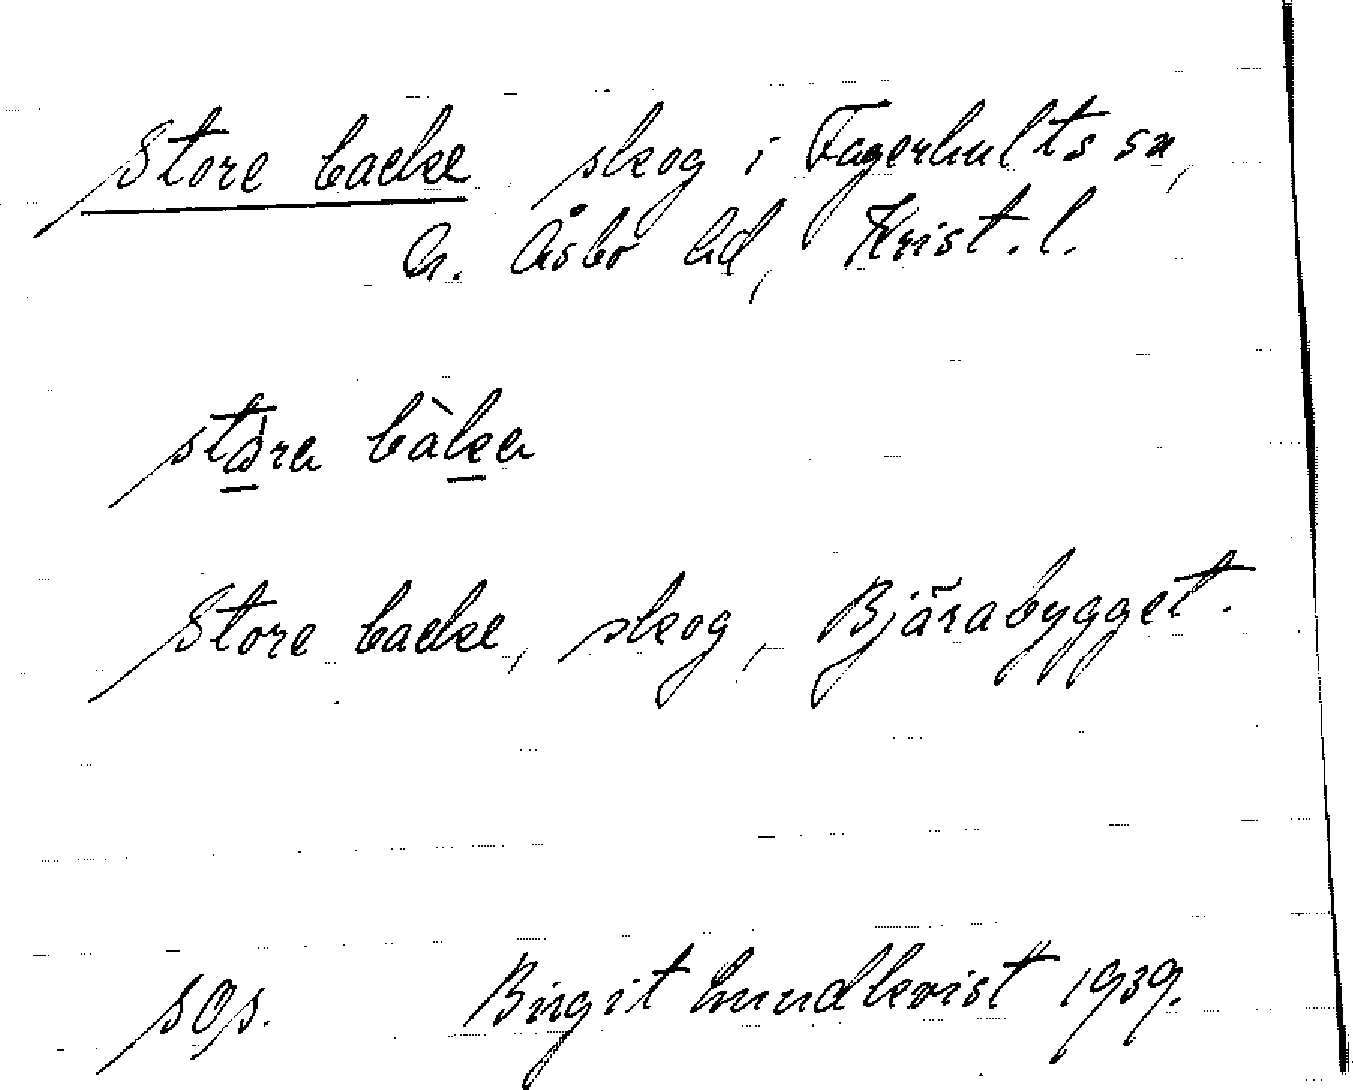 Store backe skog i Fagerhults sn,
N. Åsbo hd, Krist. l.
stóra bàka
Store backe, skog, Bjärabygget.
sOs. Birgit Lundkvist 1939.